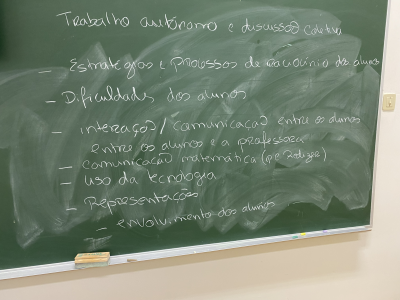 Trabalho autónomo e discussão coletiva
— Estratégias e processos de raciocínio dos alunos
— Dificuldades dos alunos
— interação / comunicação entre os alunos
entre os alunos e a professora
— comunicação matemática
— uso da tecnologia
— Representações
— envolvimento dos alunos